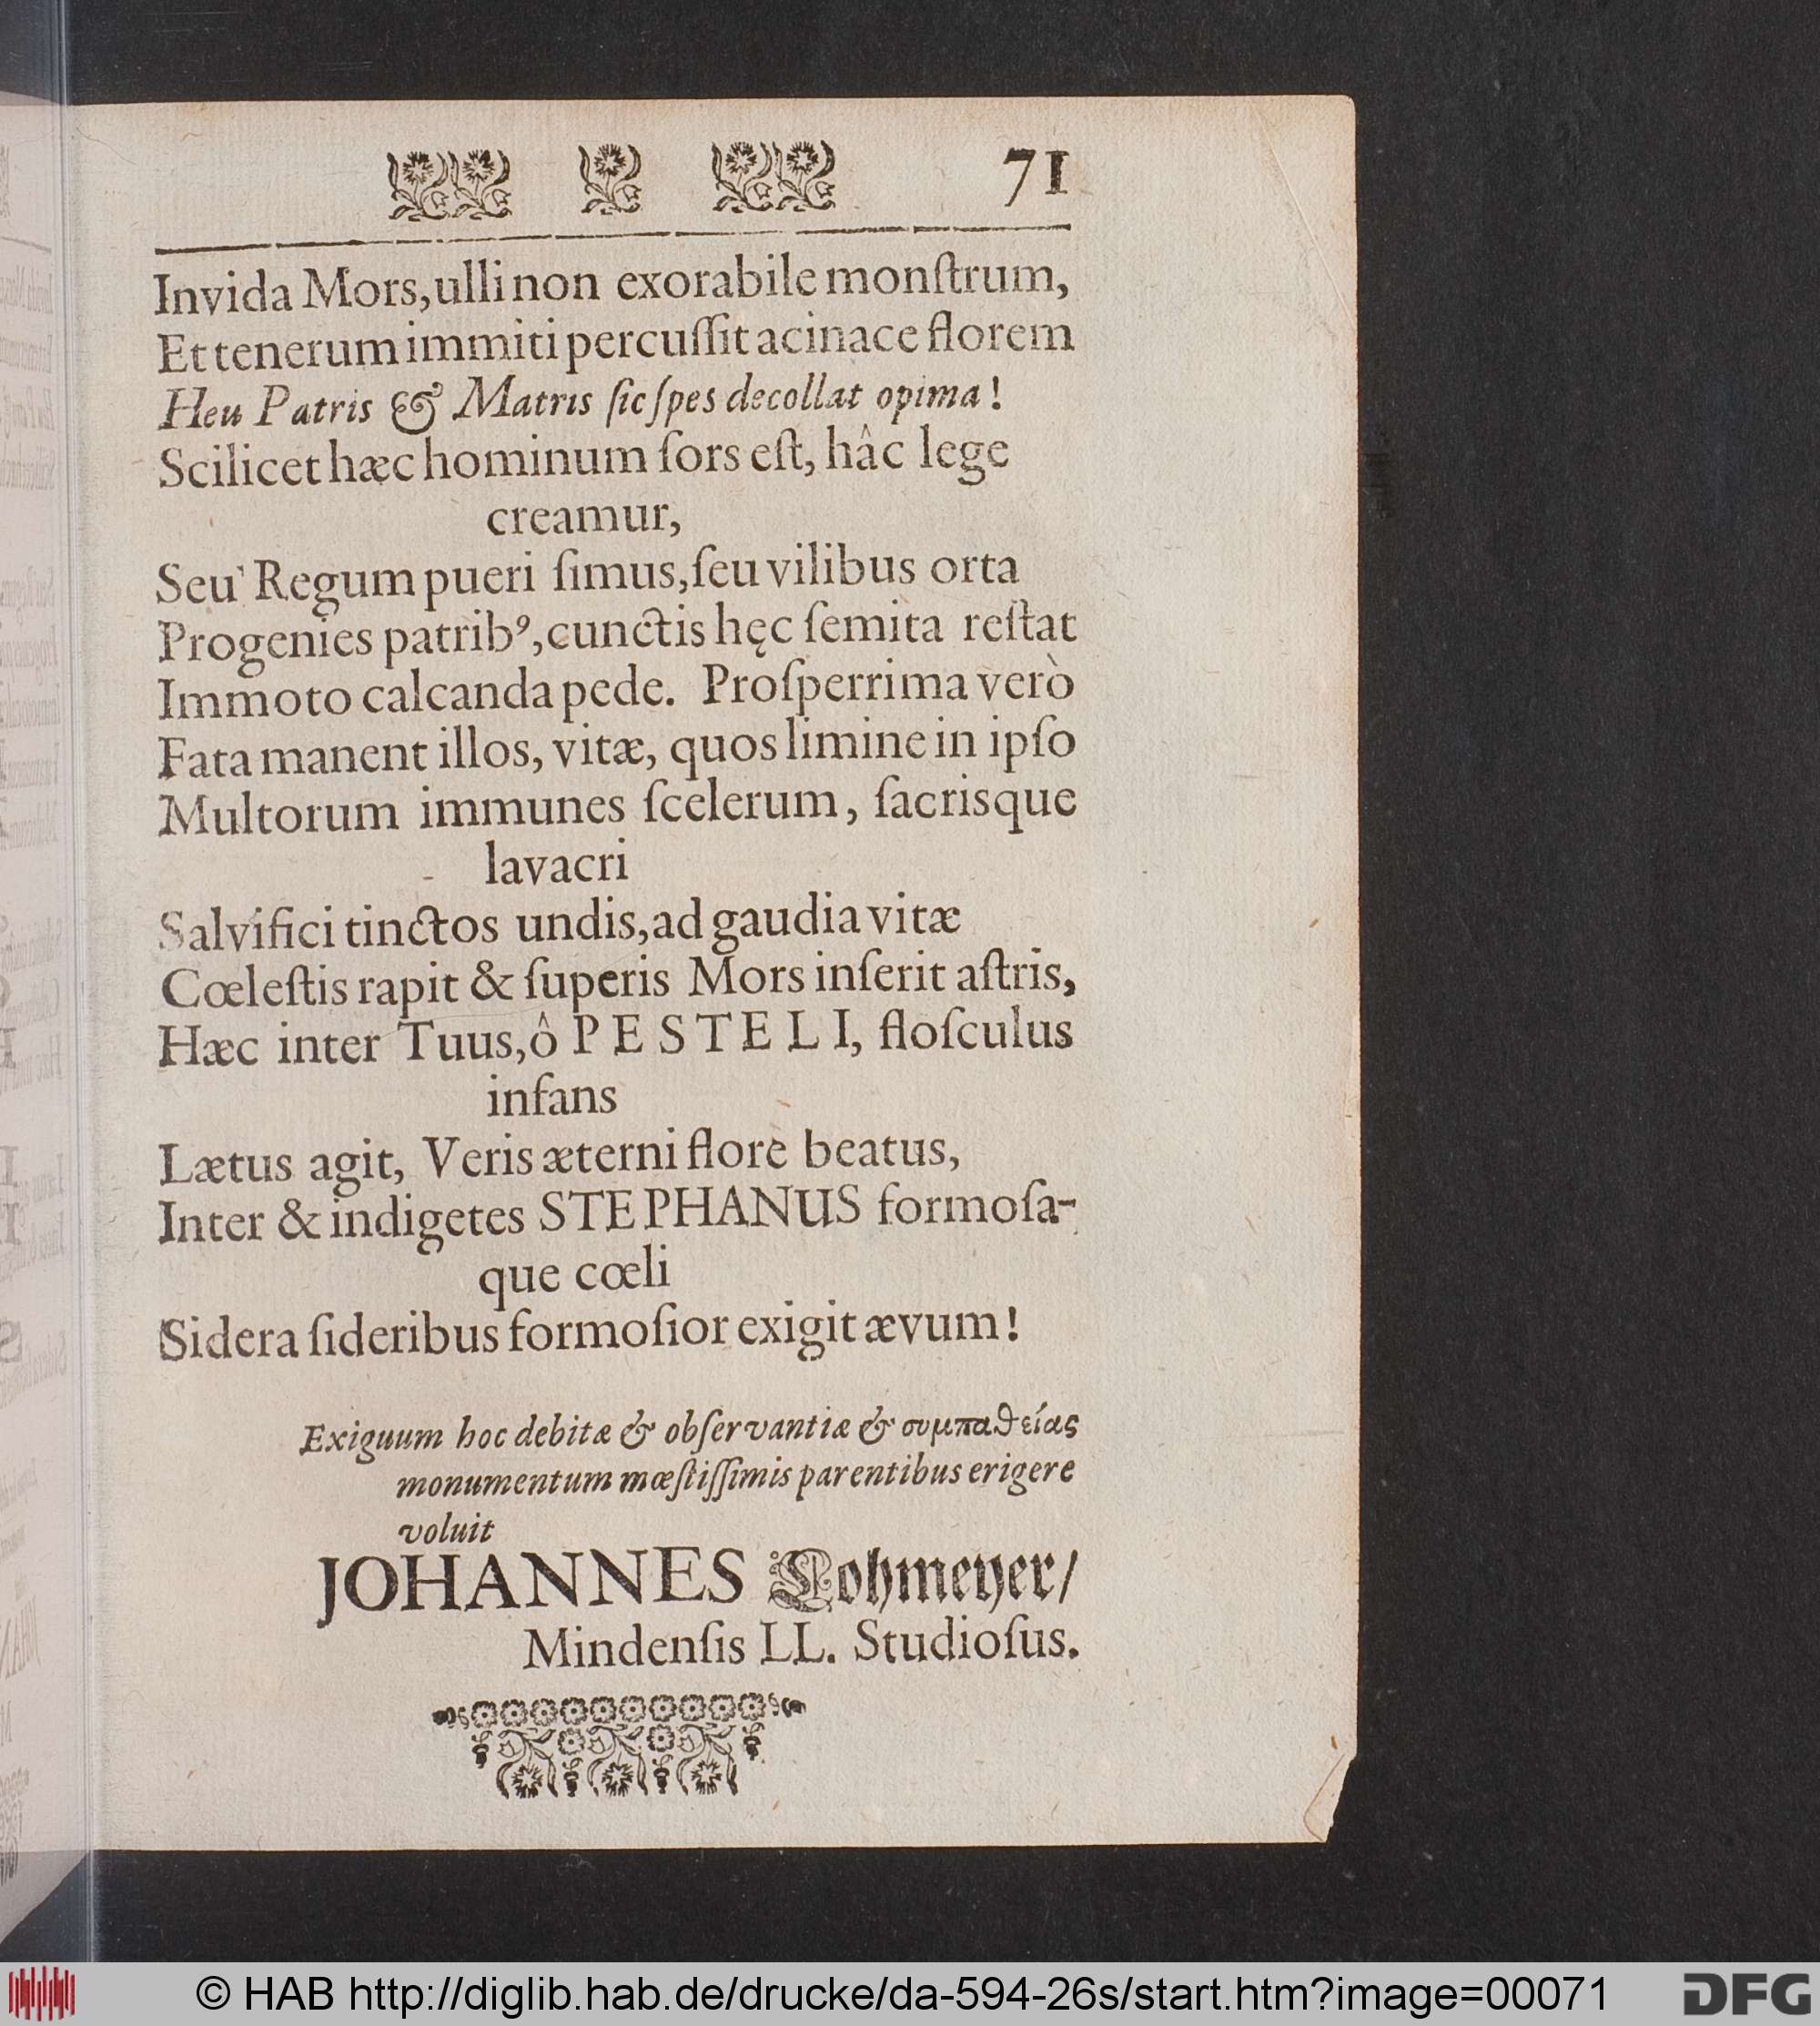 71
Invida Mors, ulli non exorabile monſtrum,
Et tenerum immiti percuſſit acinace florem
Heu Patris & Matris ſic ſpes decollat opima!
Scilicet hæc hominum ſors eſt, hâc lege
creamur,
Seu Regum pueri ſimus, ſeu vilibus orta
Progenies patribꝰ, cunctis hęc ſemita reſtat
Immoto calcanda pede. Proſperrima verò
Fata manent illos, vitæ, quos limine in ipſo
Multorum immunes ſcelerum, ſacrisque
lavacri
Salvifici tinctos undis, ad gaudia vitæ
Cœleſtis rapit & ſuperis Mors inſerit aſtris,
Hæc inter Tuus, ô PESTELI, floſculus
infans
Lætus agit, Veris æterni flore beatus,
Inter & indigetes STEPHANUS formoſa-
que cœli
Sidera ſideribus formoſior exigit ævum!
Exiguum hoc debitæ & obſervantiæ & συμπαϑείας
monumentum mœſtiſſimis parentibus erigere
voluit
JOHANNES Lohmeyer/
Mindenſis LL. Studioſus.
© HAB http://diglib.hab.de/drucke/da-594-26s/start.htm?image=00071
DFG